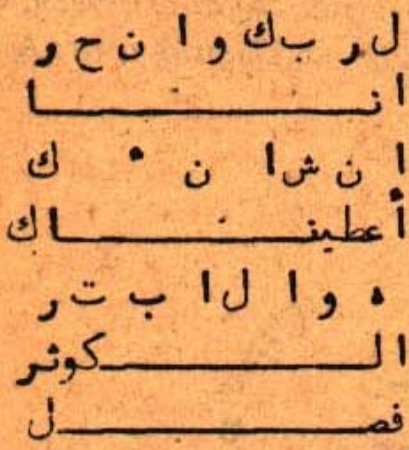 ل ر ب ك و ا ن ح ر
انــــــــــا
ا ن ش ا ن ء ك
أعطينــــــــاك
ه و ا ل ا ب ت ر
الــــــــكوثر
فصــــــــل